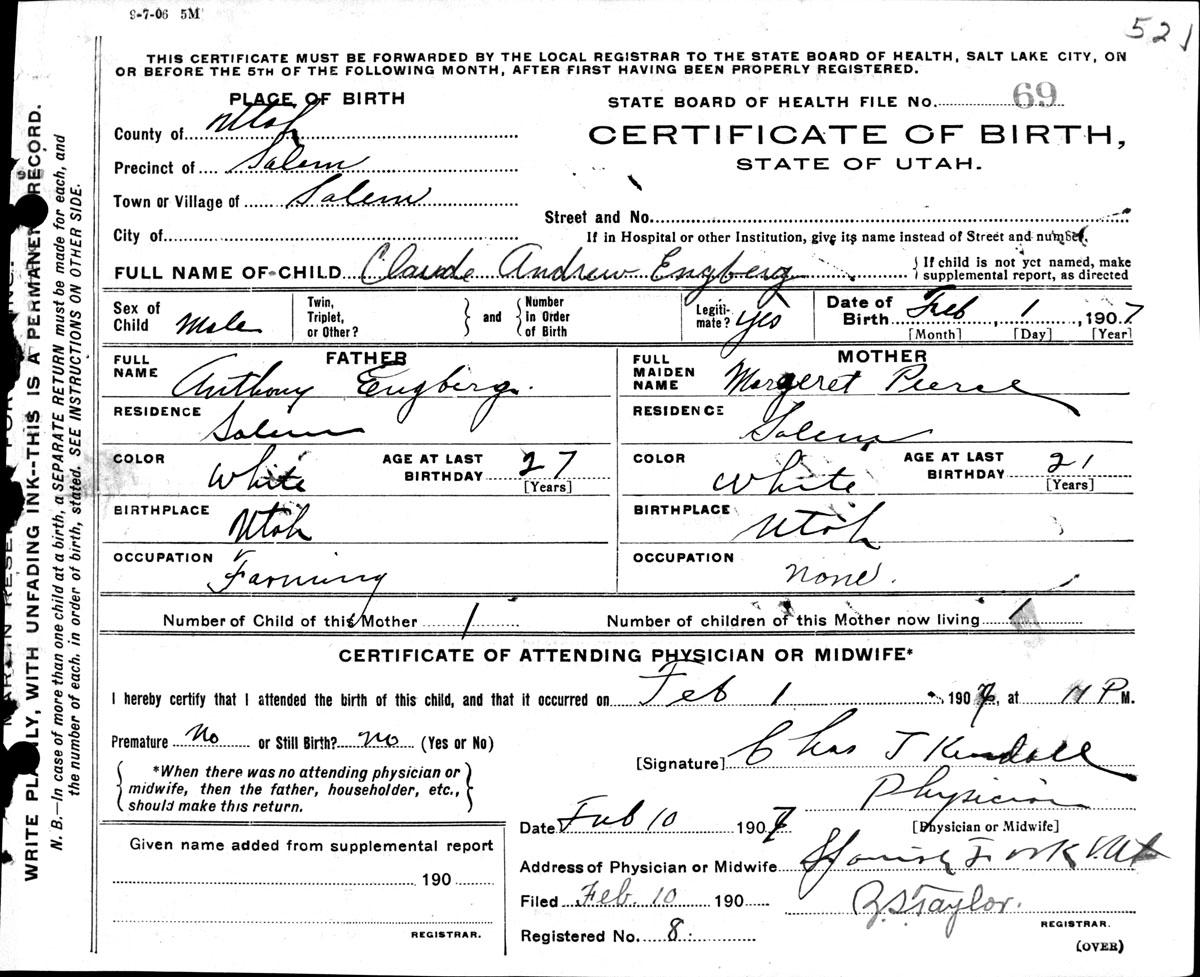 9-7-06 5M
521
THIS CERTIFICATE MUST BE FORWARDED BY THE LOCAL REGISTRAR TO THE STATE BOARD OF HEALTH, SALT LAKE CITY, ON
OR BEFORE THE 5TH OF THE FOLLOWING MONTH, AFTER FIRST HAVING BEEN PROPERLY REGISTERED.
PLACE OF BIRTH
County of Utah
Precinct of Salem
Town or Village of Salem
City of
STATE BOARD OF HEALTH FILE No. 69
CERTIFICATE OF BIRTH,
STATE OF UTAH.
Street and No.
If in Hospital or other Institution, give its name instead of Street and number.
FULL NAME OF CHILD Claude Andrew Engberg
If child is not yet named, make
supplemental report, as directed
Sex of Child Male
Twin, Triplet, or Other?
and
Number in Order of Birth
Legiti-mate? Yes
Date of Birth Feb 1, 1907
[Month] [Day] [Year]
FATHER
FULL NAME Anthony Engberg.
RESIDENCE Salem
COLOR White
AGE AT LAST BIRTHDAY 27
[Years]
BIRTHPLACE Utah
OCCUPATION Farming
MOTHER
FULL MAIDEN NAME Margeret Pierce
RESIDENCE Salem
COLOR White
AGE AT LAST BIRTHDAY 21
[Years]
BIRTHPLACE Utah
OCCUPATION none.
Number of Child of this Mother 1
Number of children of this Mother now living 1
CERTIFICATE OF ATTENDING PHYSICIAN OR MIDWIFE*
I hereby certify that I attended the birth of this child, and that it occurred on Feb 1 1907, at P M.
Premature No or Still Birth? no (Yes or No)
*When there was no attending physician or
midwife, then the father, householder, etc.,
should make this return.
[Signature] Chas T Kendall
Physician
[Physician or Midwife]
Date Feb 10 1907
Address of Physician or Midwife Spanish Fork Ut
Filed Feb. 10 190
Registered No. 8
Taylor.
REGISTRAR.
(OVER)
Given name added from supplemental report
190
REGISTRAR.
WRITE PLAINLY, WITH UNFADING INK--THIS IS A PERMANENT RECORD.
N. B.—In case of more than one child at a birth, a SEPARATE RETURN must be made for each, and
the number of each, in order of birth, stated. SEE INSTRUCTIONS ON OTHER SIDE.